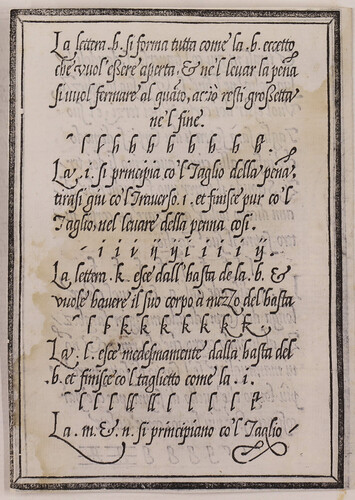 La lettera .h. si forma tutta come la .b. eccetto
che vuol essere aperta, & ne'l levar la pena
si vuol fermare al quãto, acziò resti grossetta
ne'l fine.
l l h h b b b b b b b.
La .i. si principia co'l Taglio della pena,
tirasi giu co'l Traverso .i. et finisce pur co'l
Taglio, nel levare della penna cosi.
- i i i ij ij i i i i ij.
La lettera .k. esce dall'hasta de la .b. &
vuole havere il suo corpo a mezo del hasta
l b k k k k k k k k.
La .l. esce medesmamente dalla hasta del
.b. et finisce co'l taglietto come la .i.
l l l ll ll l l l l l l.
La .m. & .n. si principiano co'l Taglio -